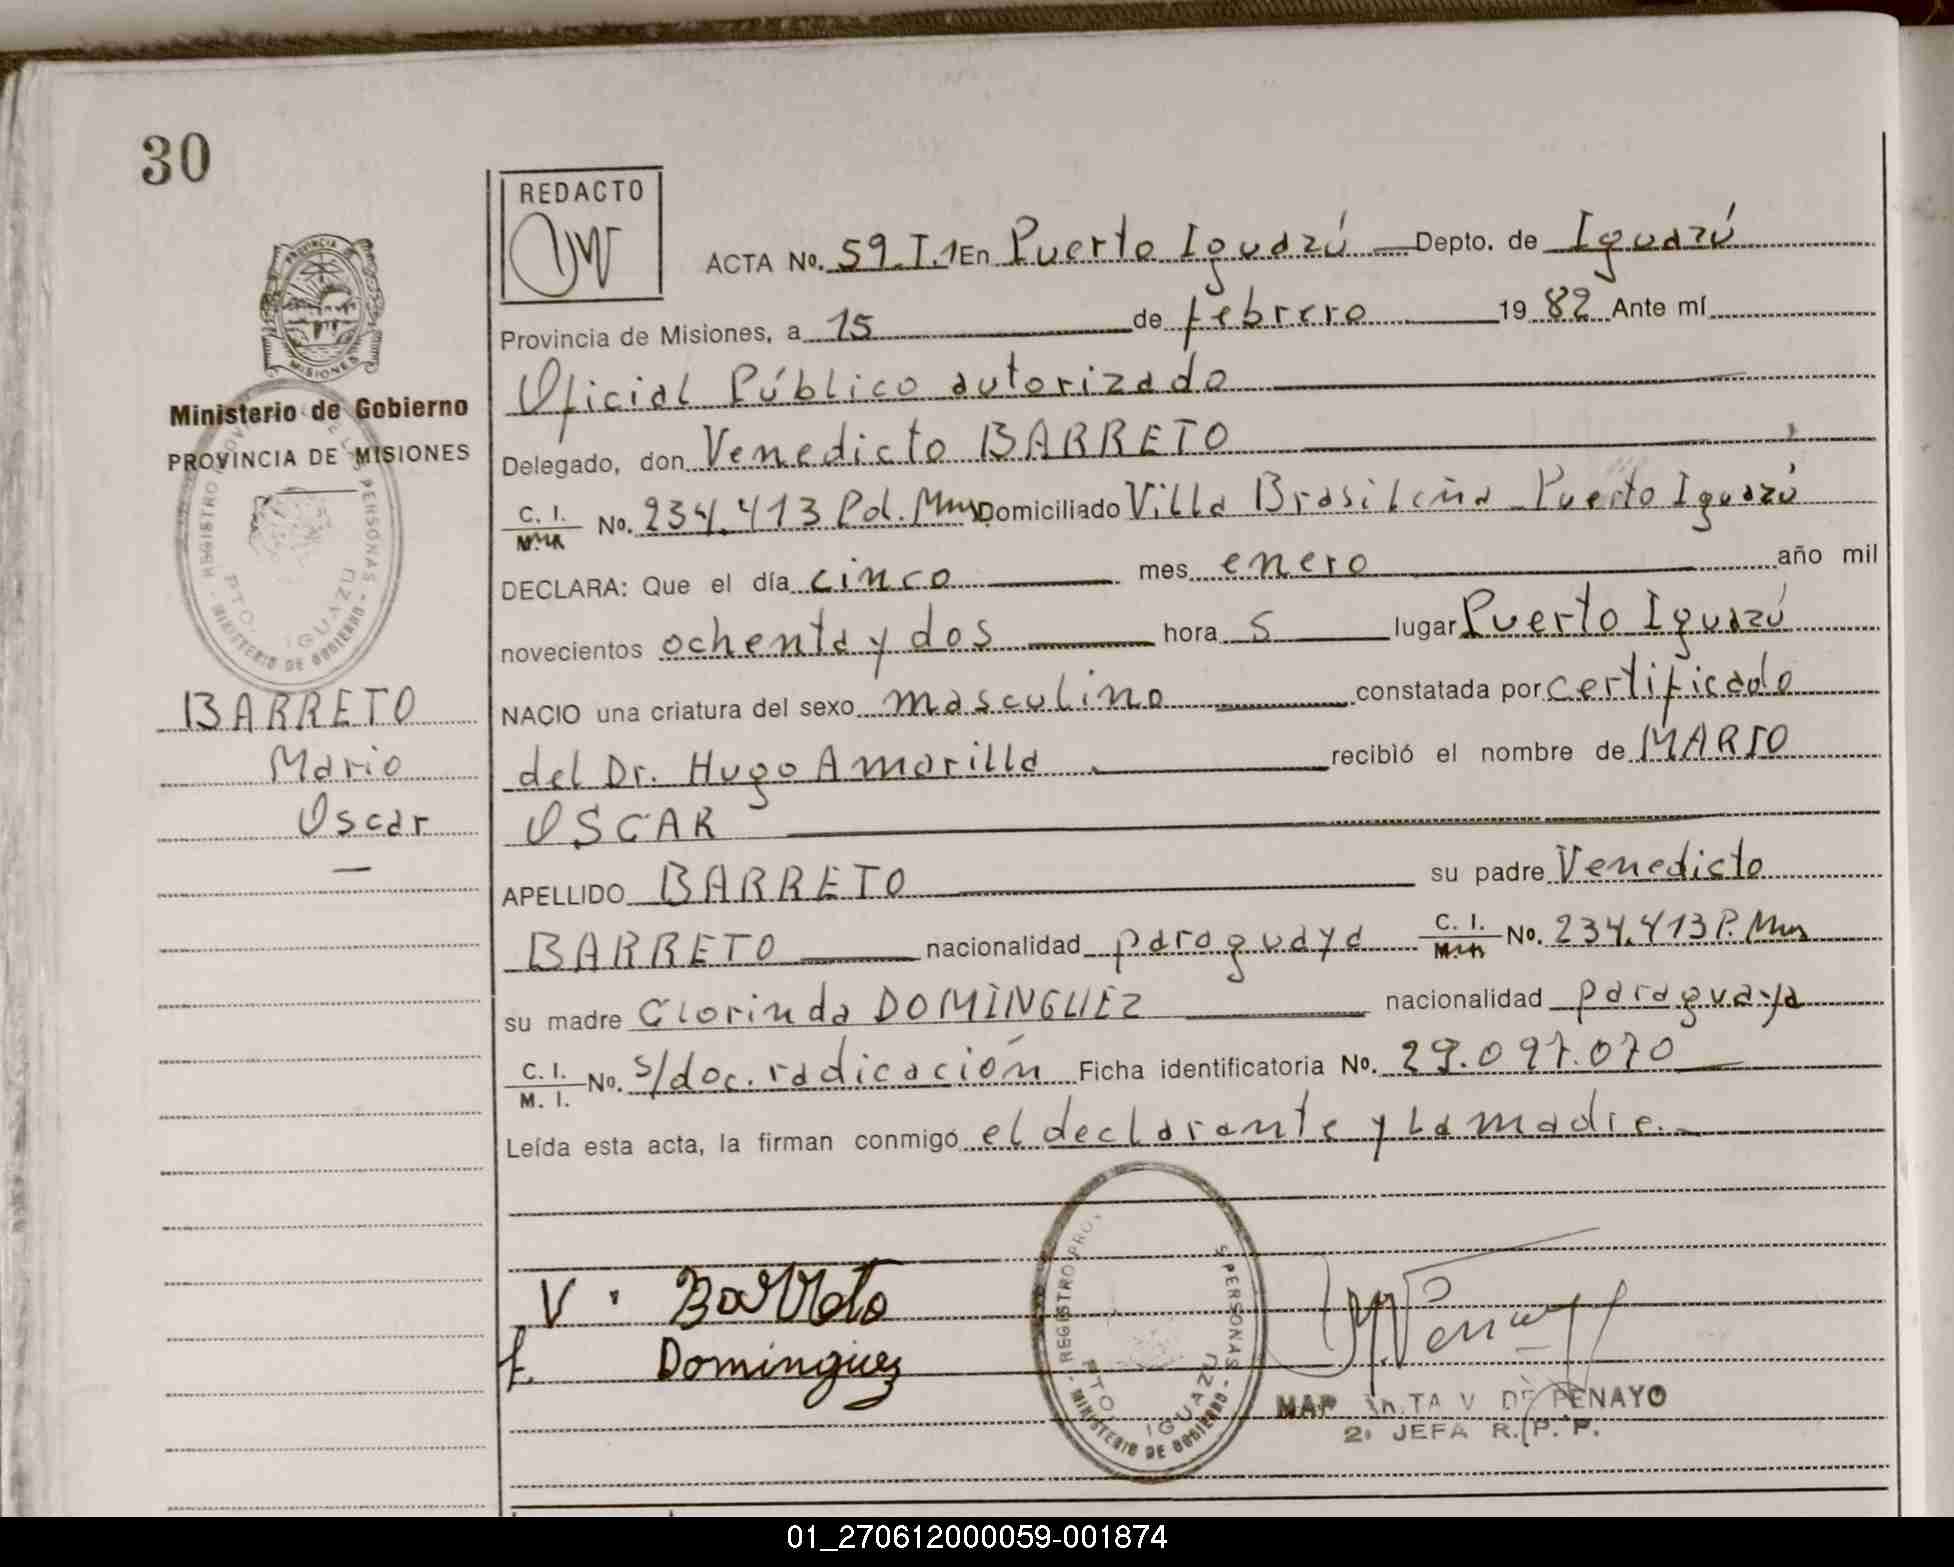 30
REDACTO
ACTA No. 59.T.1 En Puerto Iguazú Depto. de Iguazú
Provincia de Misiones, a 15 de febrero 1982 Ante mí
PROVINCIA DE
MISIONES
Oficial Público autorizado
Ministerio de Gobierno
PROVINCIA DE MISIONES
Delegado, don Venedicto BARRETO
C. I. No. 234.413 Pol. Mnes Domiciliado Villa Brasileña Puerto Iguazú
REGISTRO PROV. PERSONAS
PTO. IGUAZU
MINISTERIO DE GOBIERNO
DECLARA: Que el día cinco mes enero año mil
novecientos ochenta y dos hora 5 lugar Puerto Iguazú
BARRETO
Mario
Oscar
NACIO una criatura del sexo masculino constatada por certificado
del Dr. Hugo Amarilla recibió el nombre de MARIO
OSCAR
APELLIDO BARRETO su padre Venedicto
BARRETO nacionalidad paraguaya C. I. No. 234.413 P. Mnes
su madre Clorinda DOMÍNGUEZ nacionalidad paraguaya
C. I. M. I. No. s/doc. radicación Ficha identificatoria No. 29.097.070
Leída esta acta, la firman conmigo el declarante y la madre.
V. Barreto
Dominguez
REGISTRO PROV. PERSONAS
PTO. IGUAZU
MINISTERIO DE GOBIERNO
V. DE PENAYO
2. JEFA R. P. P.
01_270612000059-001874